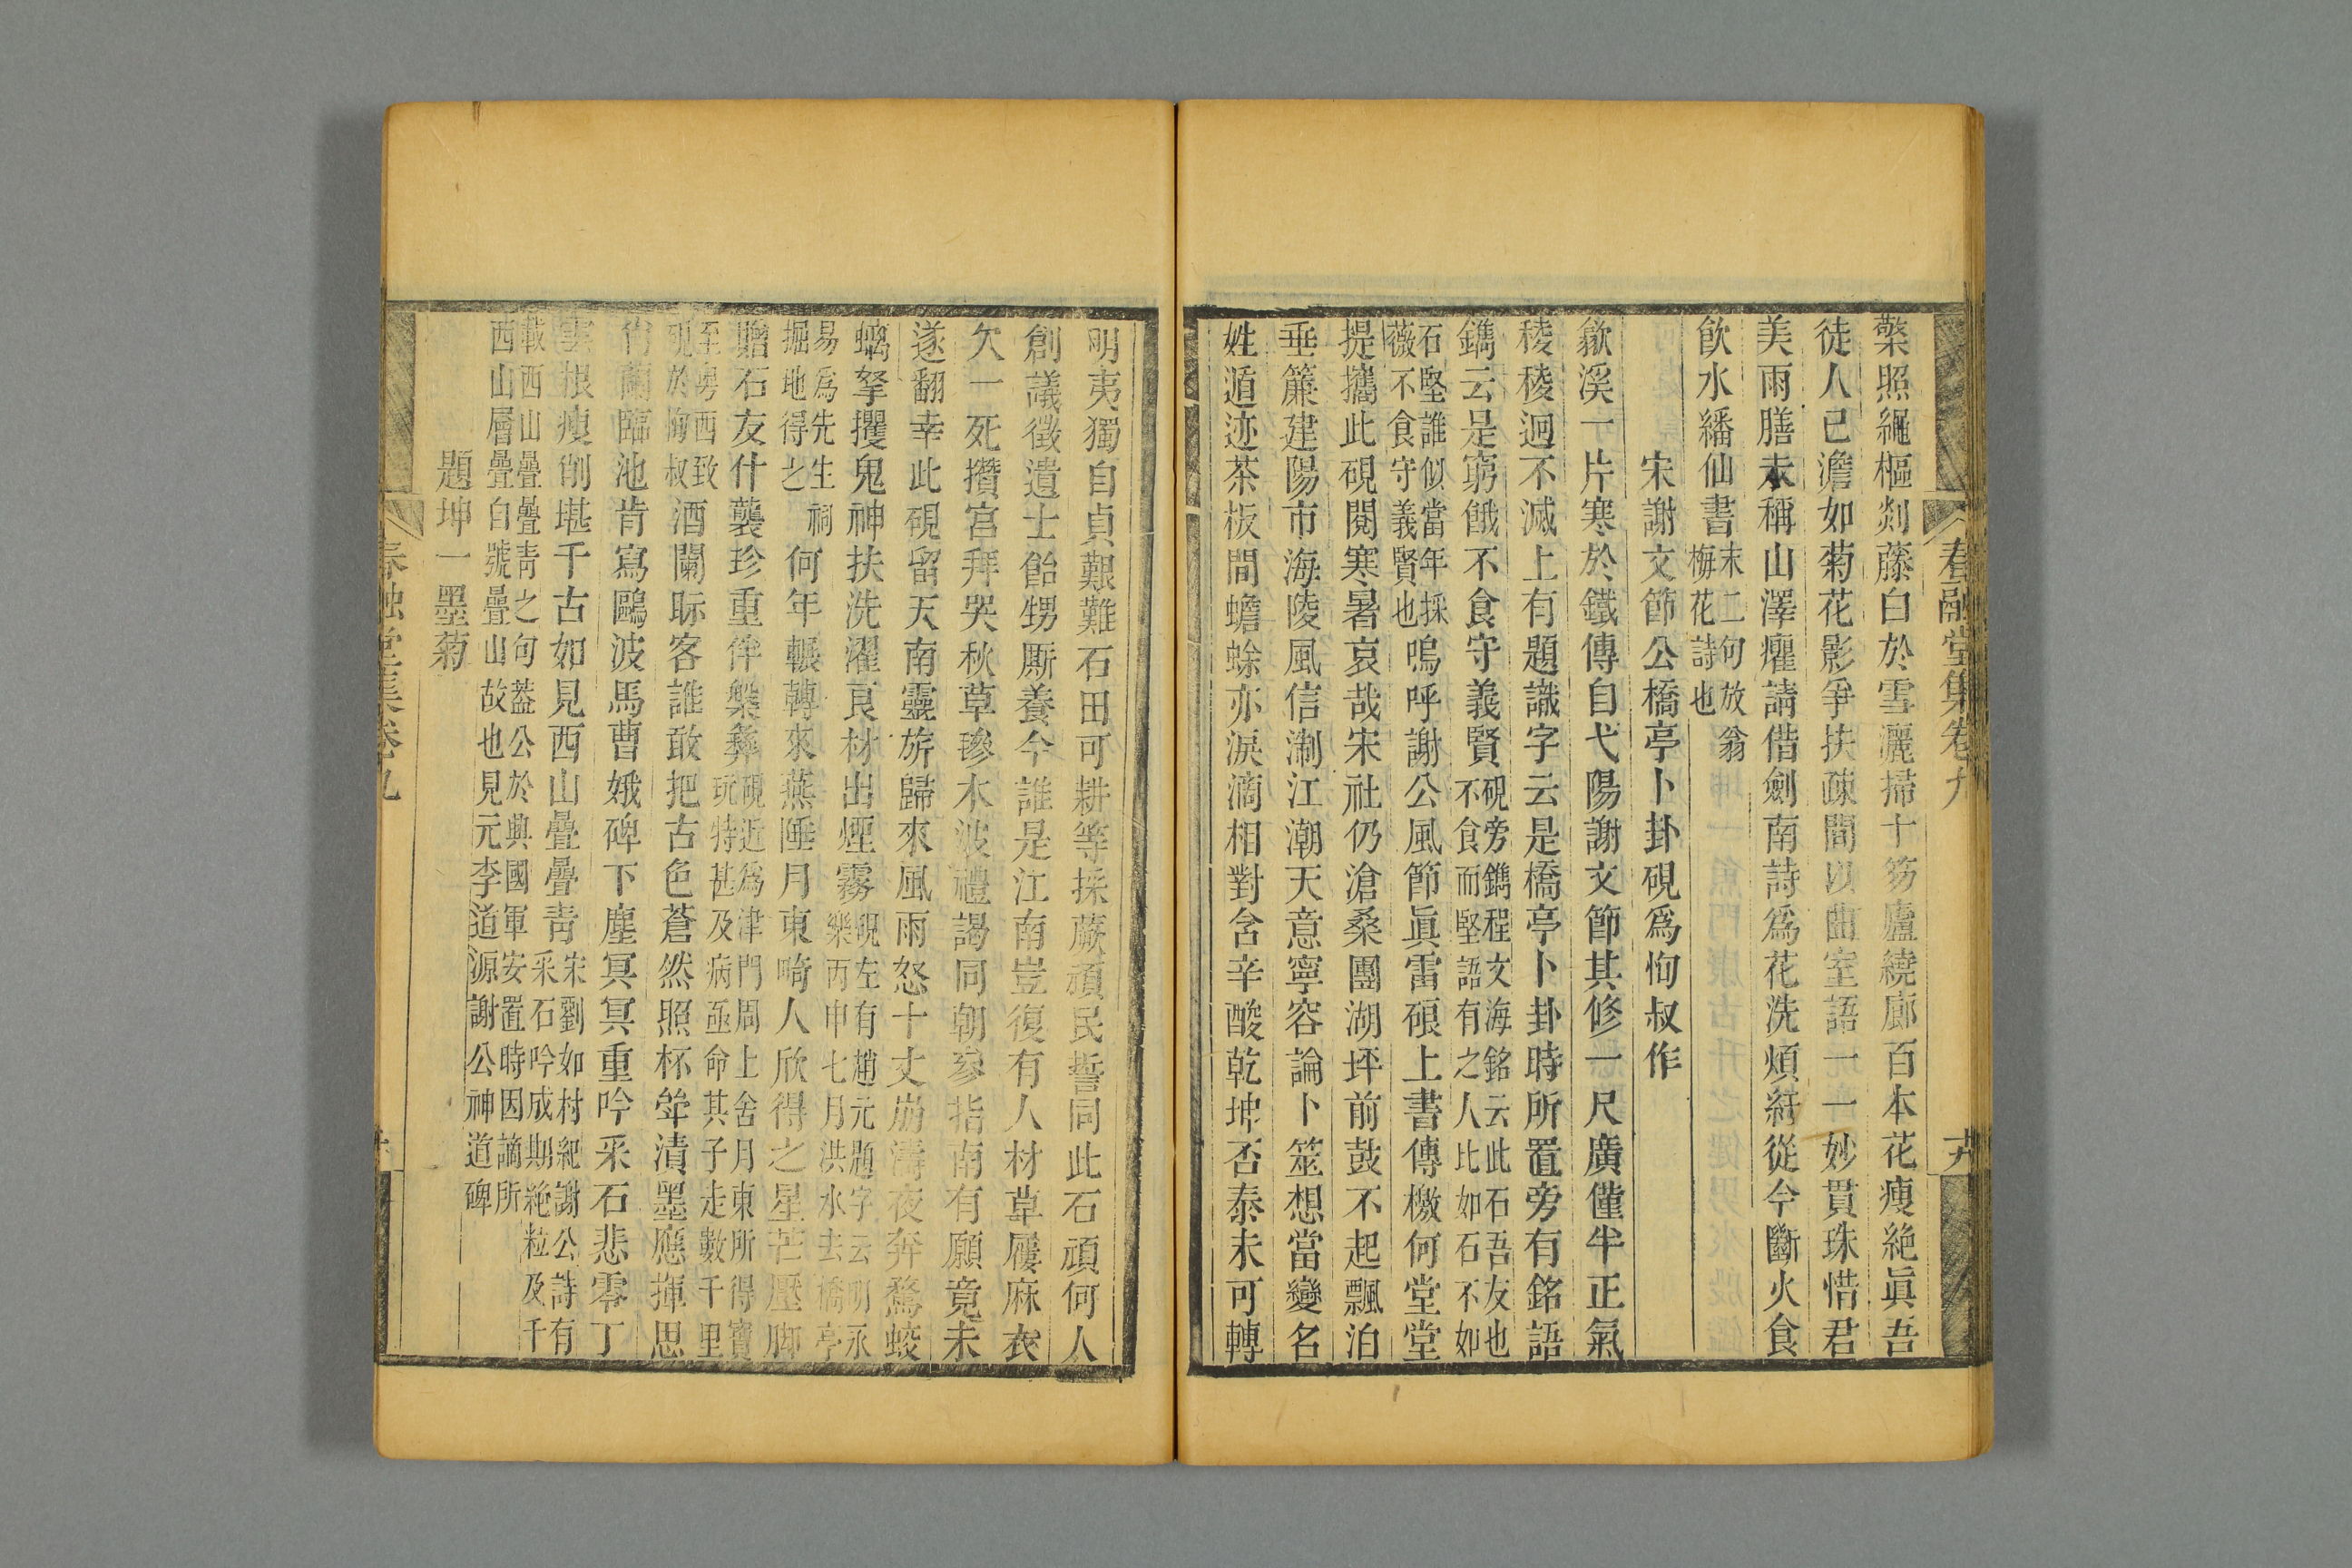 春融堂集卷九
檠照繩樞剡藤白於雪灑掃十笏廬繞廊百本花瘦絶眞吾
徒人已澹如菊花影爭扶疎間以曲室語一一妙貫珠惜君
美雨膳未稱山澤癯請借劍南詩爲花洗煩紆從今斷火食
飲水繙仙書末二句放翁梅花詩也
宋謝文節公橋亭卜卦硯爲恂叔作
歙溪一片寒於鐵傳自弋陽謝文節其修一尺廣僅半正氣
稜稜迥不滅上有題識字云是橋亭卜卦時所置旁有銘語
鐫云是窮餓不食守義賢硯旁鐫程文海銘云此石吾友也不食而堅語有之人比如石不如
石堅誰似當年採薇不食守義賢也嗚呼謝公風節眞雷硠上書傳檄何堂堂
提攜此硯閱寒暑哀哉宋社仍滄桑團湖坪前鼓不起飄泊
垂簾建陽市海陵風信淛江潮天意寧容論卜筮想當變名
姓遁迹茶板間蟾蜍亦淚滴相對含辛酸乾坤否泰未可轉
明夷獨自貞艱難石田可耕等採蕨頑民誓同此石頑何人
創議徵遺士飴甥厮養今誰是江南豈復有人材草屨麻衣
欠一死攢宮拜哭秋草瘮木波禮謁同朝叅指南有願竟未
遂翻幸此硯留天南靈旂歸來風雨怒十丈崩濤夜奔騖蛟
螭拏攫鬼神扶洗濯良材出煙霧硯左有趙元題字云明永樂丙申七月洪水去橋亭
易爲先生祠掘地得之何年輾轉來燕陲月東畸人欣得之星芒壓脚
贈石友什襲珍重伴槃彝硯近爲津門周上舍月東所得寶玩特甚及病亟命其子走數千里
至粤西致硯於恂叔酒闌眎客誰敢把古色蒼然照杯斝漬墨應揮思
肖蘭臨池肯寫鷗波馬曹娥碑下塵冥冥重吟采石悲零丁
雲根瘦削堪千古如見西山疊疊靑宋劉如村紀謝公詩有采石吟成期絶粒及千
載西山疊疊靑之句葢公於興國軍安置時因謫所西山層疊自號疊山故也見元李道源謝公神道碑
題坤一墨菊
春融堂集卷九